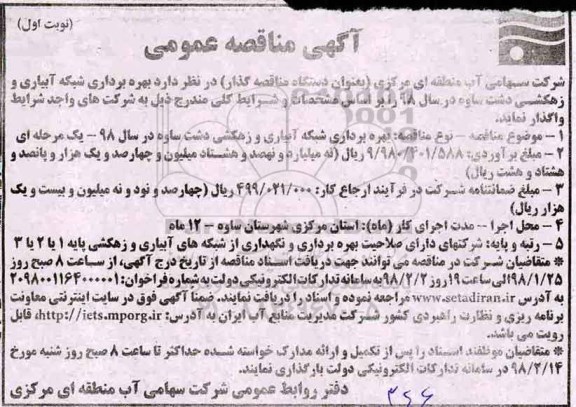 (نوبت اول)
آگهی مناقصه عمومی
شرکت سهامی آب منطقه ای مرکزی (بعنوان دستگاه مناقصه گذار) در نظر دارد بهره برداری شبکه آبیاری و
زهکشی دشت ساوه در سال ۹۸ را بر اساس مشخصات و شرایط کلی مندرج ذیل به شرکت های واجد شرایط
واگذار نماید:
۱ – موضوع مناقصه – نوع مناقصه: بهره برداری شبکه آبیاری و زهکشی دشت ساوه در سال ۹۸ – یک مرحله ای
۲ – مبلغ برآوردی: ۹/۹۸۰/۴۰۱/۵۸۸ ریال (نه میلیارد و نهصد و هشتاد میلیون و چهارصد و یک هزار و پانصد و
هشتاد و هشت ریال)
۳ – مبلغ ضمانتنامه شرکت در فرآیند ارجاع کار: ۴۹۹/۰۲۱/۰۰۰ ریال (چهارصد و نود و نه میلیون و بیست و یک
هزار ریال)
۴ – محل اجرا – مدت اجرای کار (ماه): استان مرکزی شهرستان ساوه – ۱۲ ماه
۵ – رتبه و پایه: شرکتهای دارای صلاحیت بهره برداری و نگهداری از شبکه های آبیاری و زهکشی پایه ۱ یا ۲ یا ۳
* متقاضیان شرکت در مناقصه می توانند جهت دریافت اسناد مناقصه از تاریخ درج آگهی، از ساعت ۸ صبح روز
۹۸/۱/۲۵ الی ساعت ۱۹ روز ۹۸/۲/۲ به سامانه تدارکات الکترونیکی دولت به شماره فراخوان: ۲۰۹۸۰۰۱۱۶۴۰۰۰۰۰۱
به آدرس www.setadiran.ir مراجعه نموده و اسناد را دریافت نمایند. ضمنا آگهی فوق در سایت اینترنتی معاونت
برنامه ریزی و نظارت راهبردی کشور شرکت مدیریت منابع آب ایران به آدرس: http://iets.mporg.ir، قابل
رویت می باشد.
* متقاضیان موظفند اسناد را پس از تکمیل و ارائه مدارک خواسته شده حداکثر تا ساعت ۸ صبح روز شنبه مورخ
۹۸/۲/۱۴ در سامانه تدارکات الکترونیکی دولت بارگذاری نمایند.
دفتر روابط عمومی شرکت سهامی آب منطقه ای مرکزی
۳۶۶